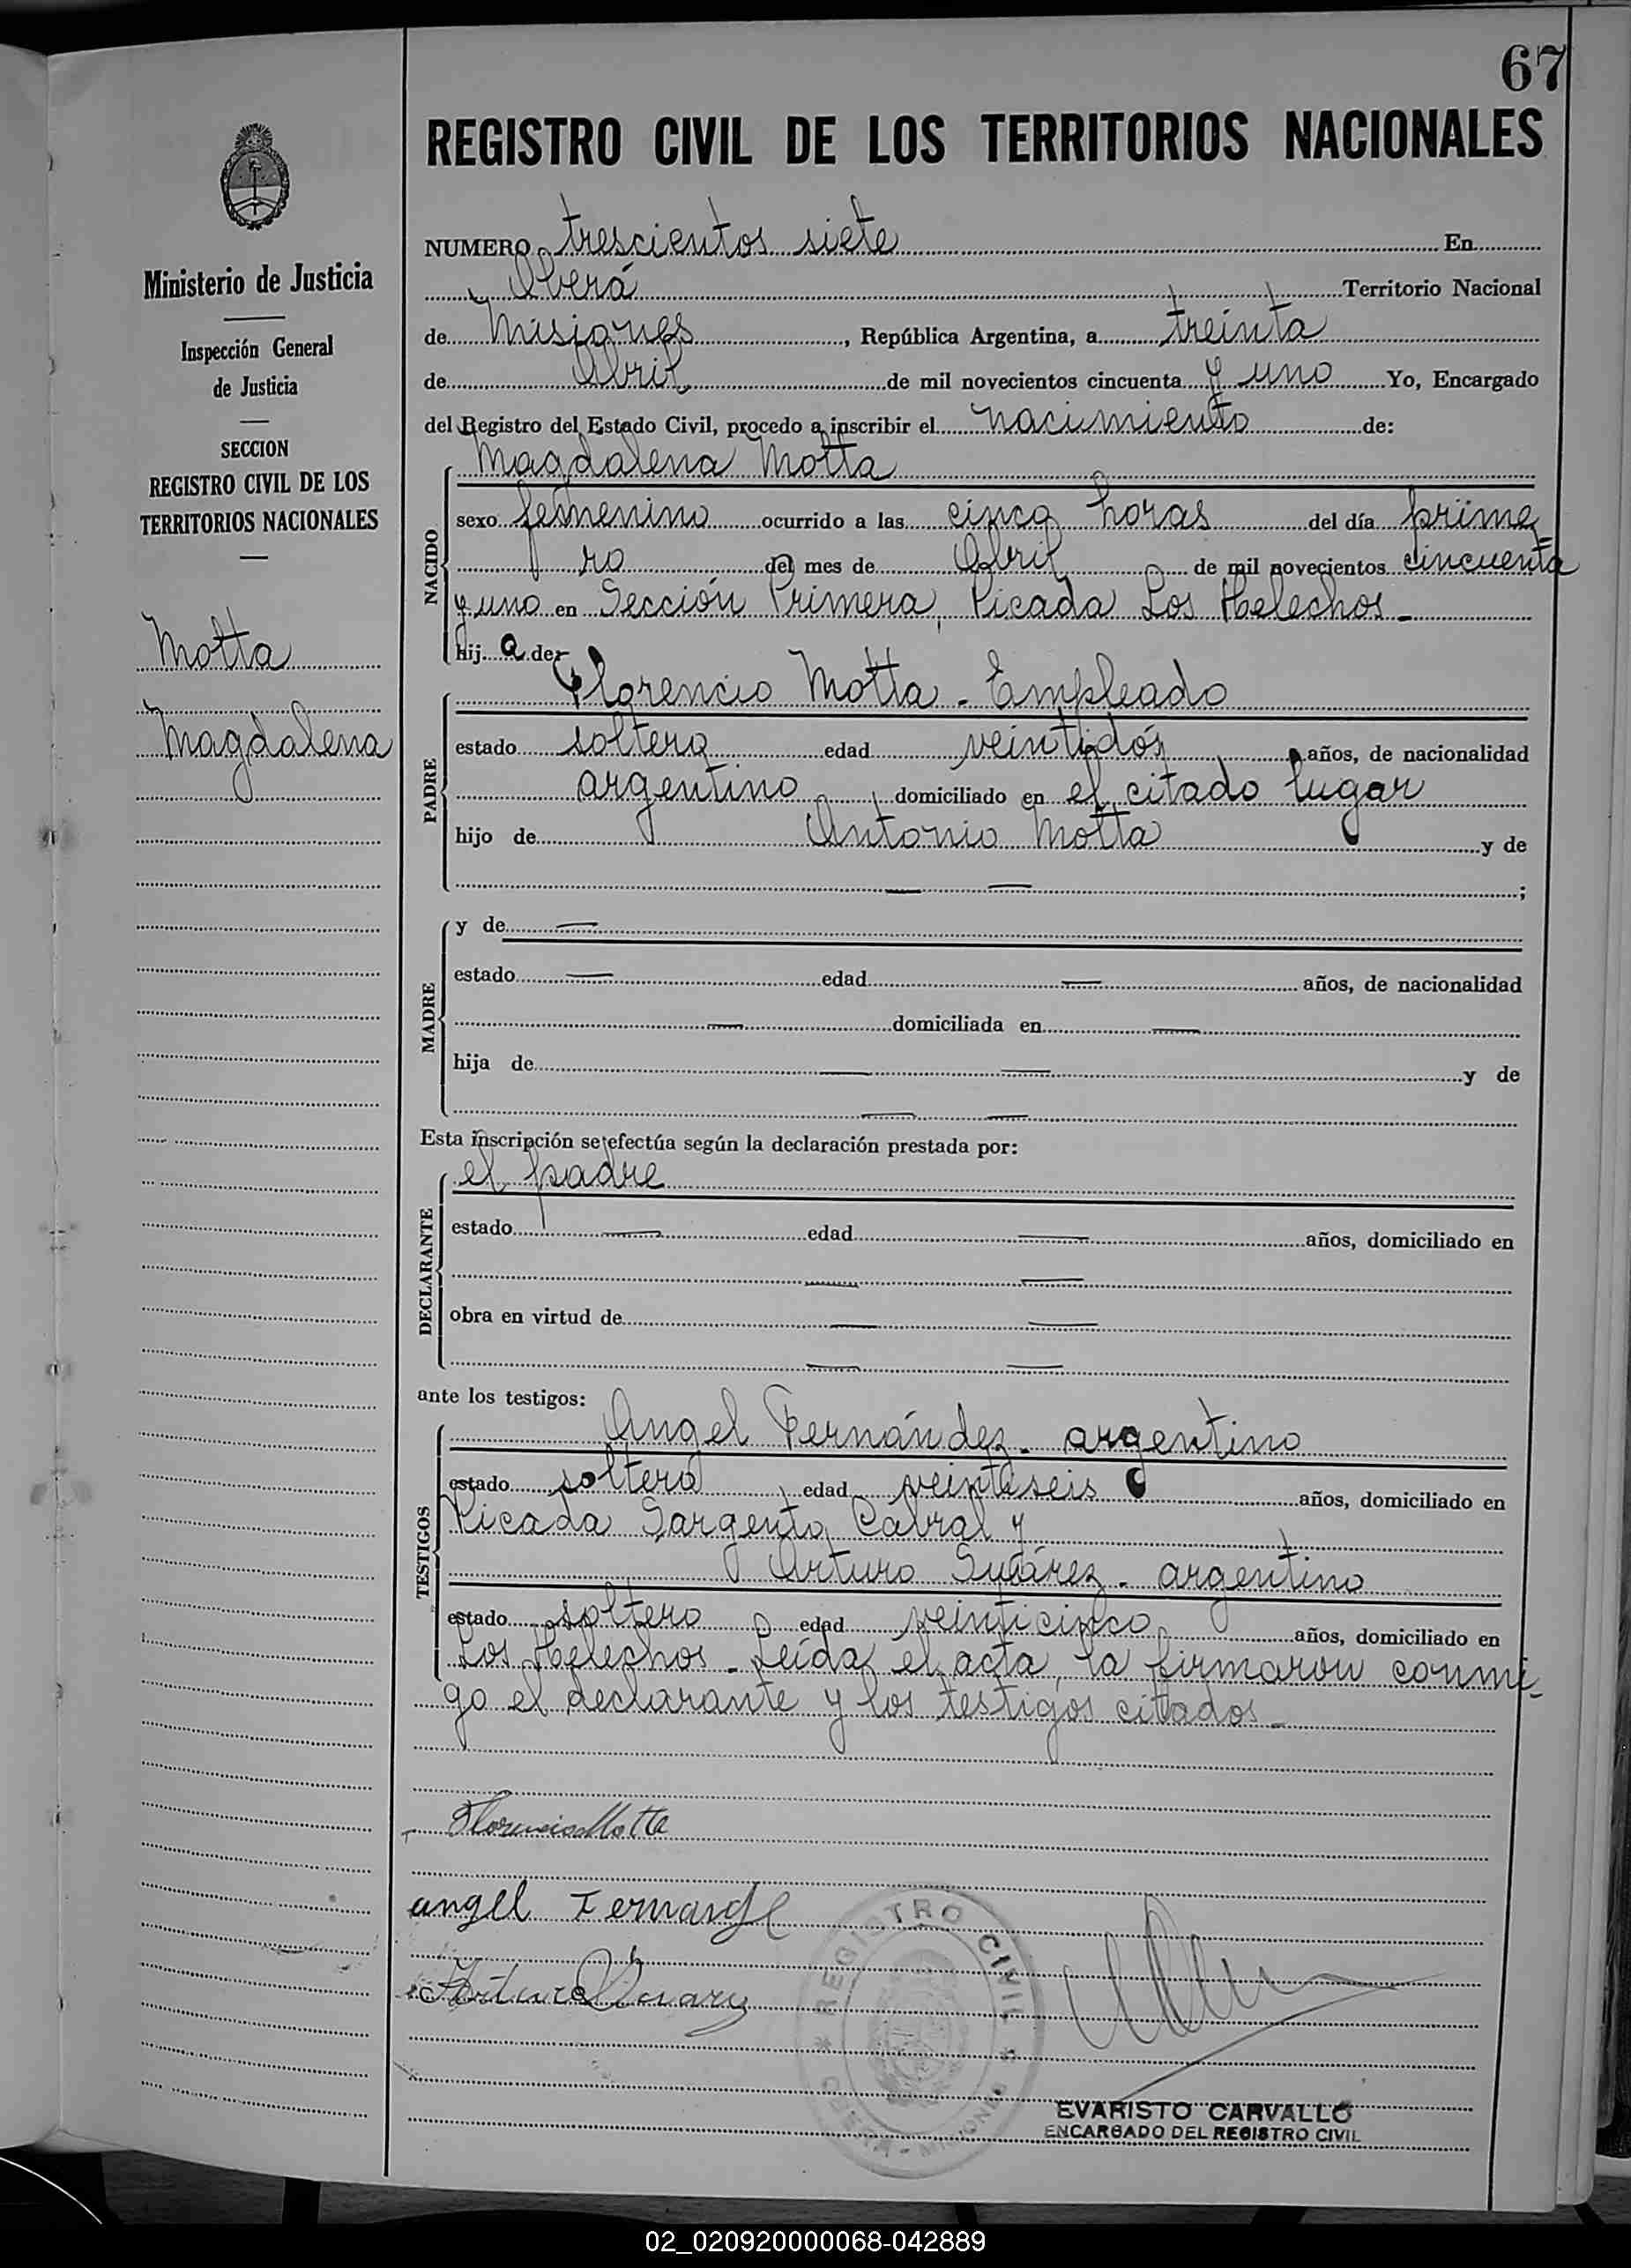 67
REGISTRO CIVIL DE LOS TERRITORIOS NACIONALES
Ministerio de Justicia
Inspección General
de Justicia
SECCION
REGISTRO CIVIL DE LOS
TERRITORIOS NACIONALES
Motta
Magdalena
NUMERO trescientos siete En
Oberá Territorio Nacional
de Misiones, República Argentina, a treinta
de Abril de mil novecientos cincuenta y uno Yo, Encargado
del Registro del Estado Civil, procedo a inscribir el nacimiento de:
NACIDO
Magdalena Motta
sexo femenino ocurrido a las cinco horas del día prime
ro del mes de Abril de mil novecientos cincuenta
y uno en Sección Primera, Picada Los Helechos
hija de:
PADRE
Florencio Motta - Empleado
estado soltero edad veintidós años, de nacionalidad
argentino domiciliado en el citado lugar
hijo de Antonio Motta y de
— — ;
MADRE
y de —
estado — edad — años, de nacionalidad
— domiciliada en —
hija de — — y de
— —
Esta inscripción se efectúa según la declaración prestada por:
DECLARANTE
el padre
estado — edad — años, domiciliado en
— —
obra en virtud de — —
— —
ante los testigos:
TESTIGOS
Angel Fernández - argentino
estado soltero edad veintiseis años, domiciliado en
Picada Sargento Cabral y
Arturo Suárez - argentino
estado soltero edad veinticinco años, domiciliado en
Los Helechos - Leída el acta, la firmaron conmi-
go el declarante y los testigos citados -
Florencio Motta
angel Fernandez
Arturo Suarez
REGISTRO CIVIL
* OBERA - MISIONES *
EVARISTO CARVALLO
ENCARGADO DEL REGISTRO CIVIL
02_020920000068-042889